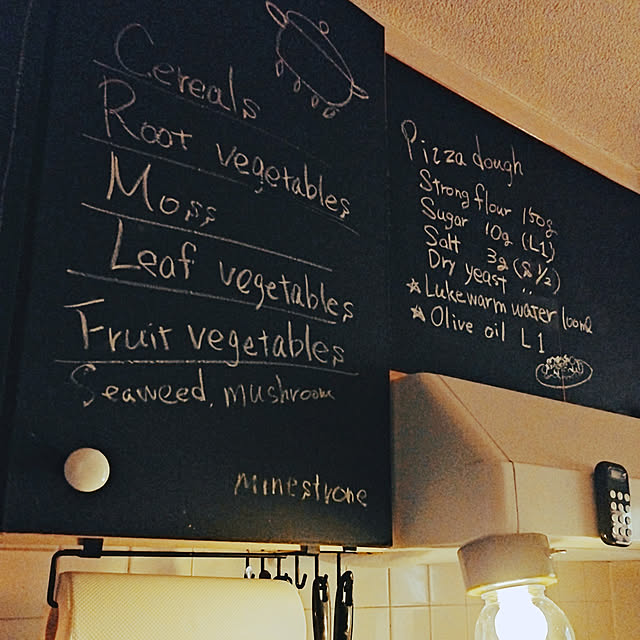 Cereals
Root vegetables
Moss
Leaf vegetables
Fruit vegetables
Seaweed, mushroom
minestrone
Pizza dough
Strong flour 150g
Sugar 10g (L1)
Salt 3g (S 1/2)
Dry yeast 〃
☆ Lukewarm water 100ml
☆ Olive oil L1